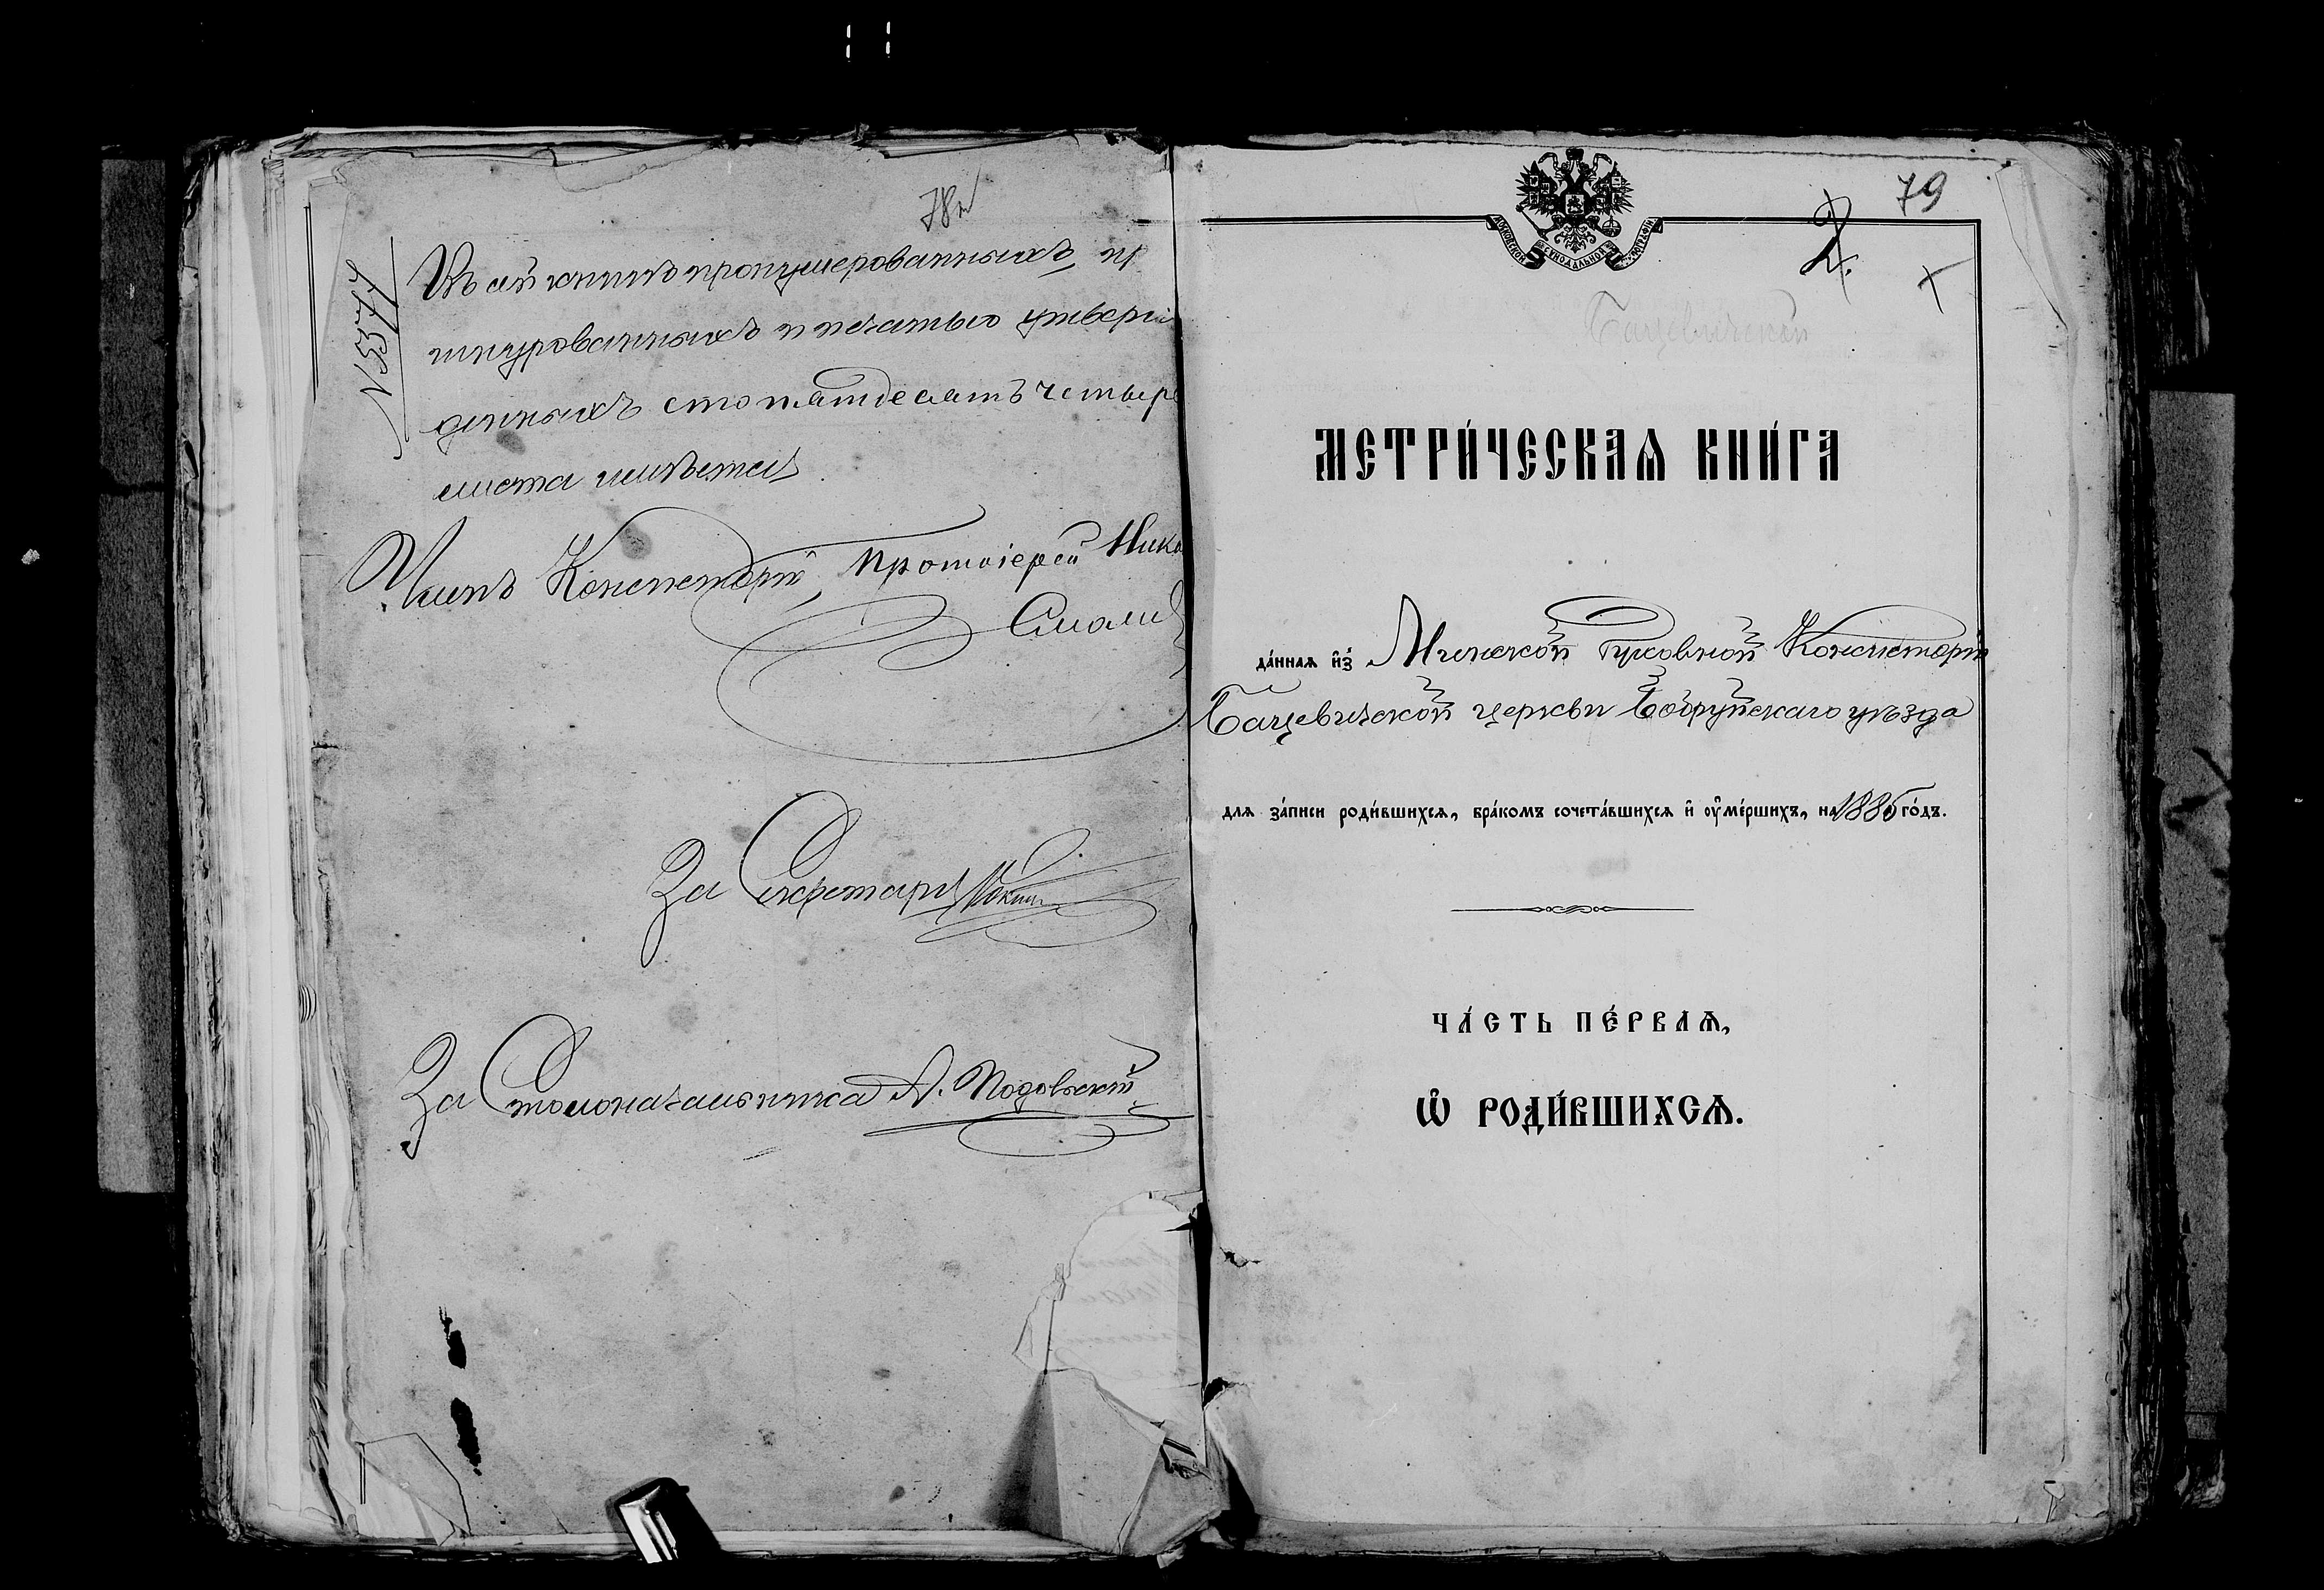 78
№ 5577
Въ сей книгѣ пронумерованныхъ, и
шнурованныхъ и печатью утверж
денныхъ сто пятдесятъ четыре
листа имѣется
Членъ Консисторіи, Протоіерей Нико
Смоли
За Секретаря
За Столоначальника А.
79
2.
МОСКОВСКОЙ СѴНОДАЛЬНОЙ ТѴПОГРАФІИ
Бацевичской
МЕТРИ́ЧЕСКАѦ КНИ́ГА
да́ннаѧ и҆з̾ Минской Духовной Консисторіи
Бацевичской церкви Бобруйскаго уѣзда
для за́писи роди́вшихсѧ, бра́комъ сочета́вшихсѧ и҆ ᲂу҆ме́ршихъ, на 1885 го́дъ.
ЧА́СТЬ ПЕ́РВАѦ,
Ѽ РОДИ́ВШИХСѦ.